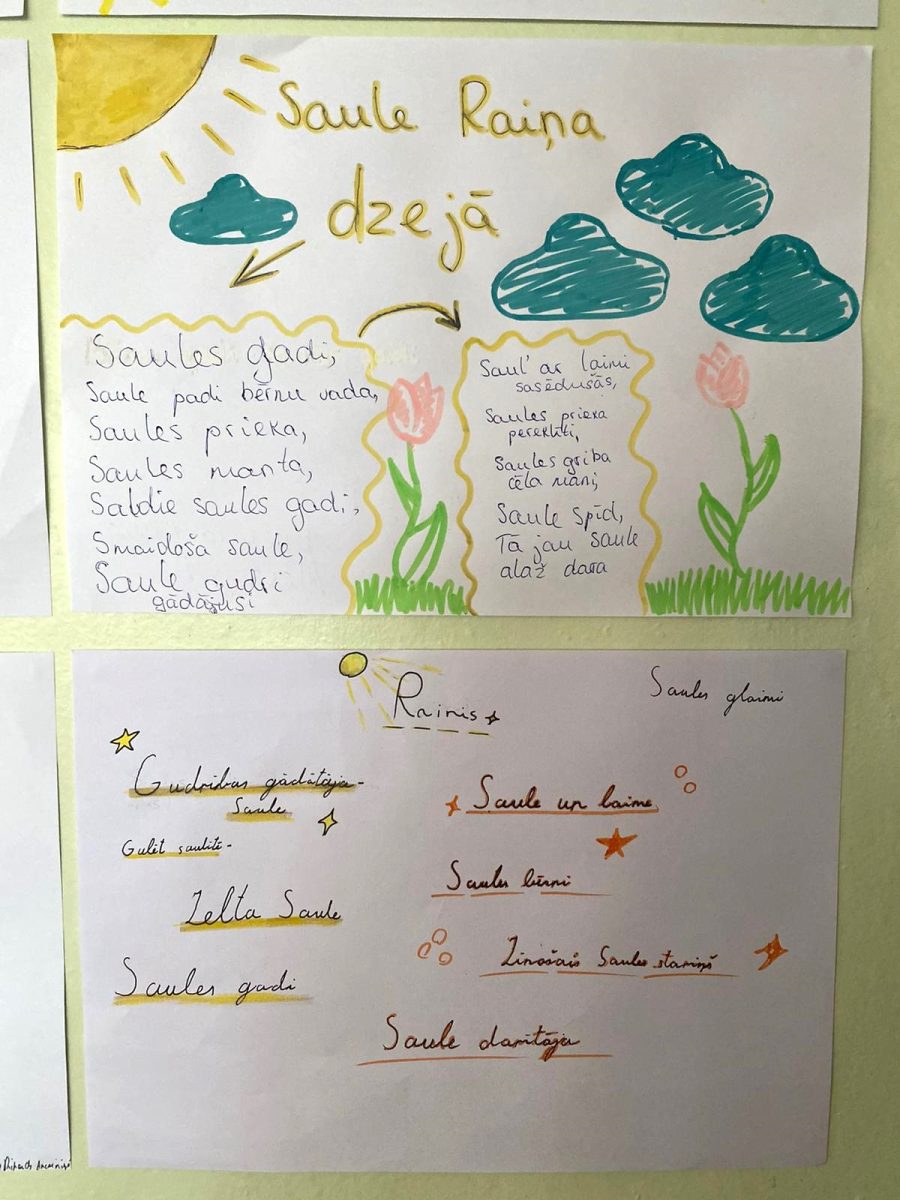 Saule Raiņa
dzejā
Saules gadi,
Saule padi bērnu vada,
Saules prieka,
Saules manta,
Saldie saules gadi,
Smaidoša saule,
Saule gudri
gādājusi
Saul' ar laimi
sasēdušās,
Saules prieka
perekļiti,
Saules griba
cēla mani,
Saule spīd,
Tā jau saule
alaž dara
Rainis
Saules glaimi
Gudrības gādātāja-
Saule
Gulēt saulītē-
Zelta Saule
Saules gadi
Saule un laime
Saules bērni
Zinošais Saules stariņš
Saule darītāja